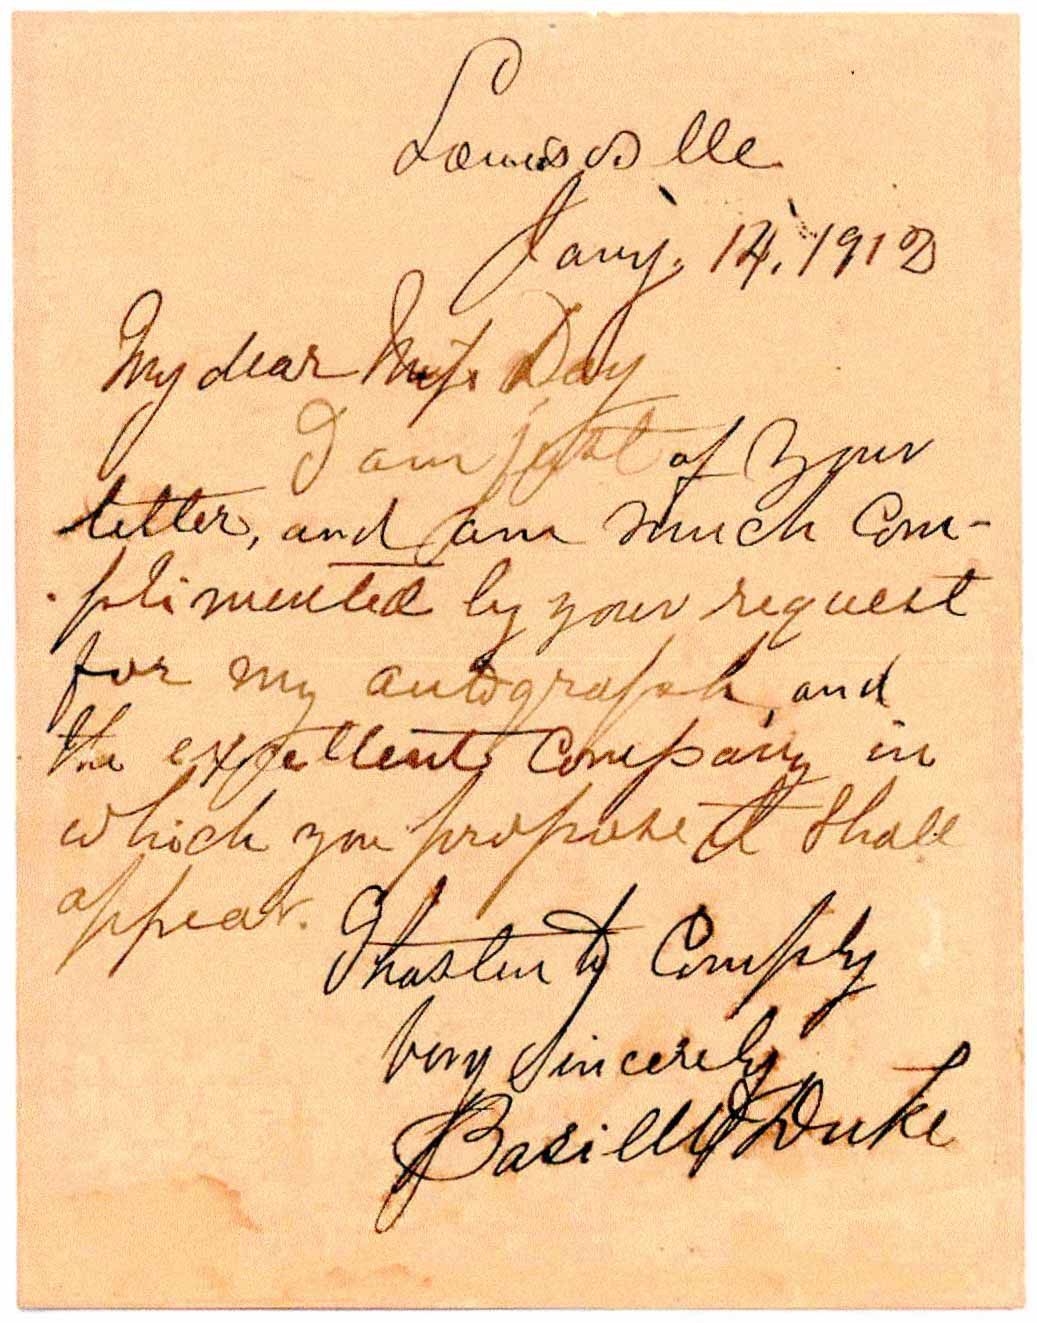 Louisville
Jany. 14, 1912
My dear Miss Day
I am just of your
letter, and am much com-
plimented by your request
for my autograph, and
the excellent company in
which you propose it shall
appear.
I hasten to comply
Very sincerely
Basil W Duke